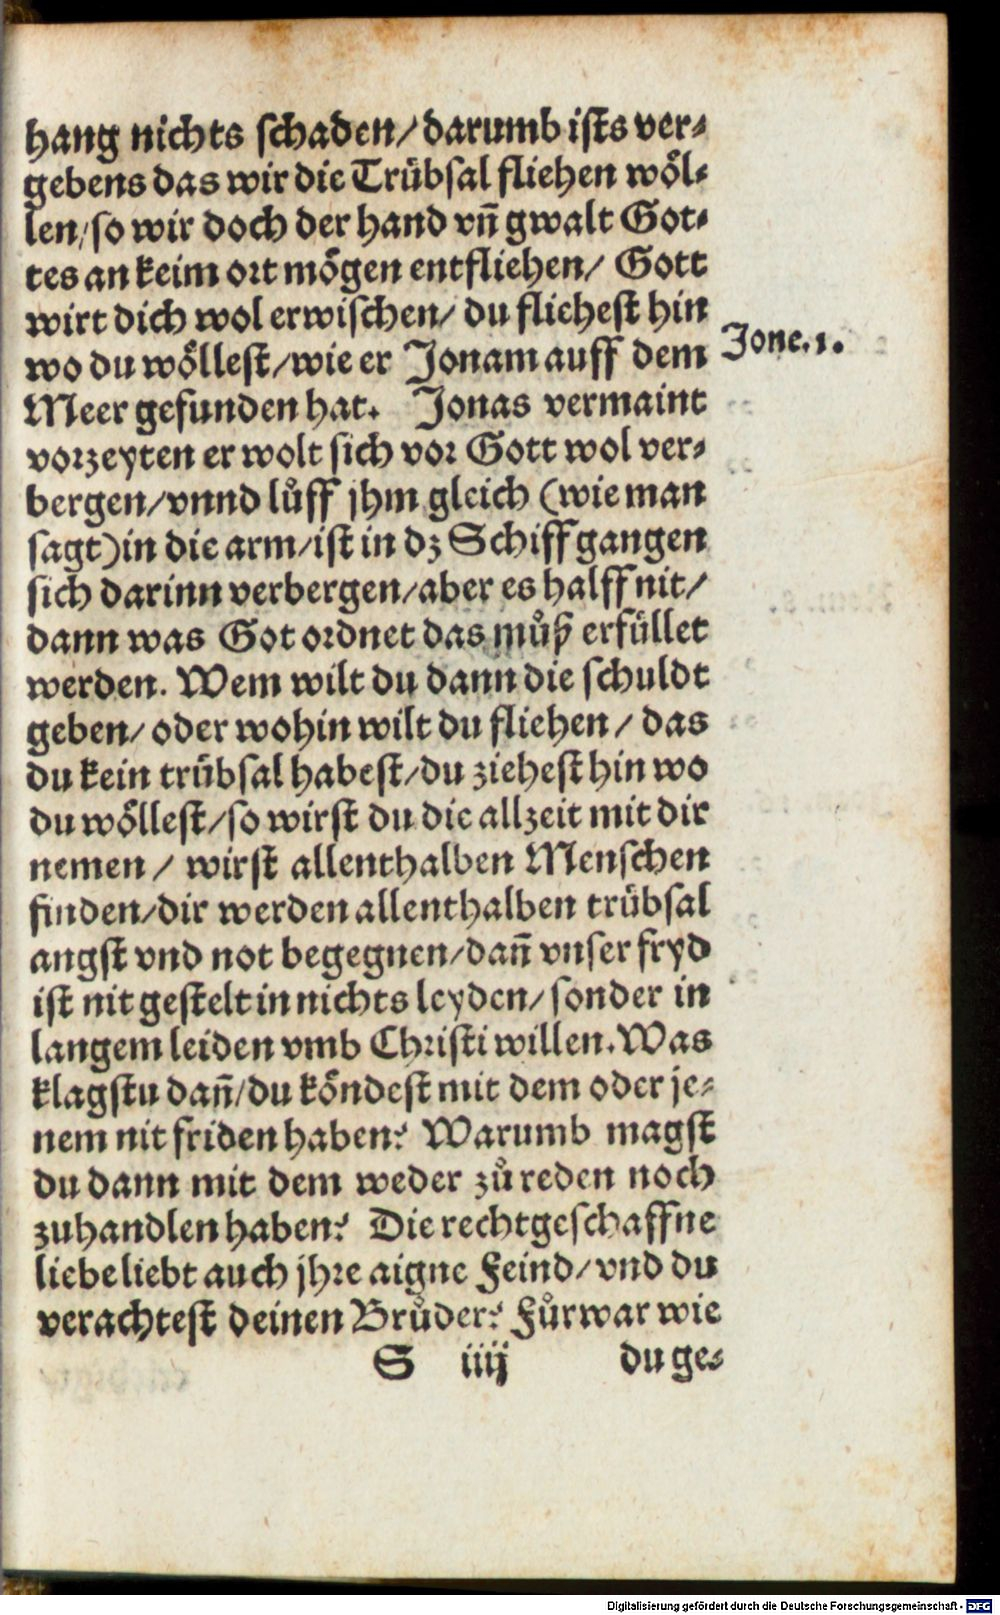 hang nichts schaden/darumb ists ver⸗
gebens das wir die Trübsal fliehen wöl⸗
len/so wir doch der hand vñ gwalt Got⸗
tes an keim ort mögen entfliehen/ Gott
wirt dich wol erwischen/ du fliehest hin
wo du wöllest/wie er Jonam auff dem
Jone. 1.
Meer gefunden hat. Jonas vermaint
vorzeyten er wolt sich vor Gott wol ver⸗
bergen/vnnd lůff jhm gleich (wie man
sagt)in die arm/ist in dz Schiff gangen
sich darinn verbergen/aber es halff nit/
dann was Got ordnet das můß erfüllet
werden. Wem wilt du dann die schuldt
geben/ oder wohin wilt du fliehen / das
du kein trübsal habest/du ziehest hin wo
du wöllest/so wirst du die allzeit mit dir
nemen / wirst allenthalben Menschen
finden/dir werden allenthalben trübsal
angst vnd not begegnen/dañ vnser fryd
ist nit gestelt in nichts leyden/sonder in
langem leiden vmb Christi willen. Was
klagstu dañ/du köndest mit dem oder je⸗
nem nit friden haben? Warumb magst
du dann mit dem weder zů reden noch
zuhandlen haben? Die rechtgeschaffne
liebe liebt auch jhre aigne Feind/vnd du
verachtest deinen Brůder? Fůrwar wie
S iiij du ge⸗
Digitalisierung gefördert durch die Deutsche Forschungsgemeinschaft - DFG